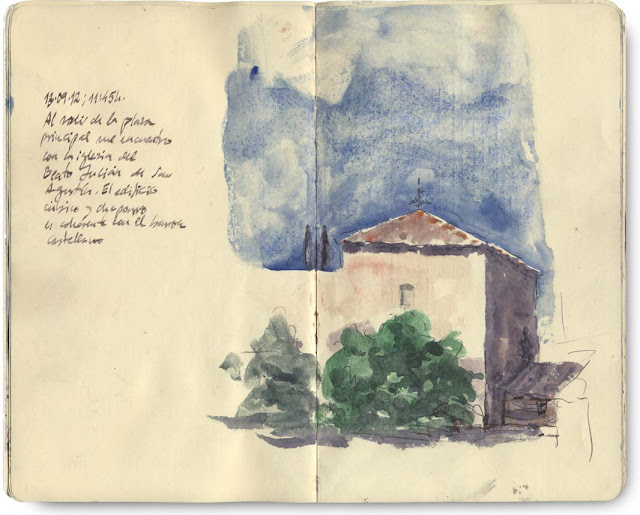 13·09·12; 11:45h.
Al salir de la plaza
principal me encuentro
con la iglesia del
Beato Julián de San
Agustín. El edificio
cúbico y chaparro
es coherente con el barroco
castellano